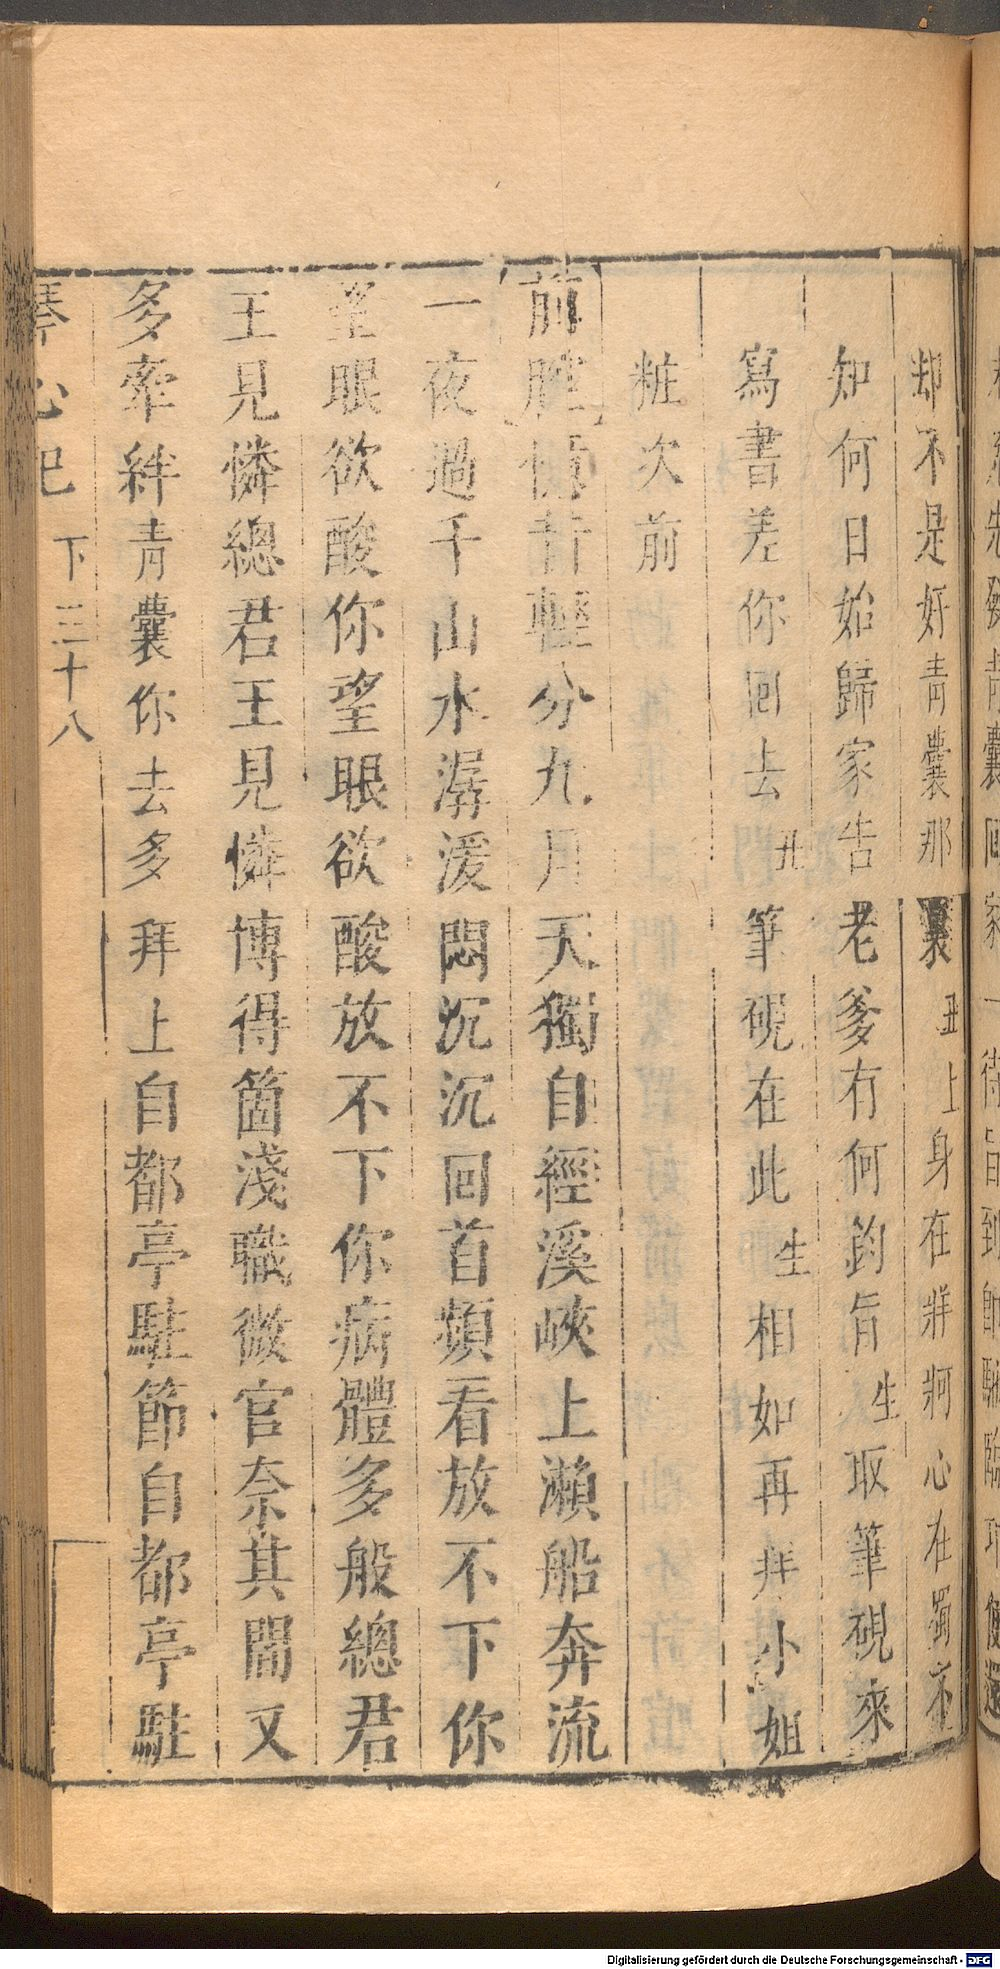 却不是好青囊那裏丑上身在牂牁心在蜀不
知何日始歸家告老爹有何鈞旨生取筆硯來
寫書差你回去丑筆硯在此生相如再拜小姐
粧次前
前腔憶昔輕分九月天獨自經溪峽上瀨船奔流
一夜過千山水潺湲悶沉沉回首頻看放不下你
望眼欲酸你望眼欲酸放不下你病體多般總君
王見憐總君王見憐博得箇淺職微官奈其間又
多牽絆青囊你去多拜上自都亭駐節自都亭駐
琴心記 下 三十八
Digitalisierung gefördert durch die Deutsche Forschungsgemeinschaft - DFG